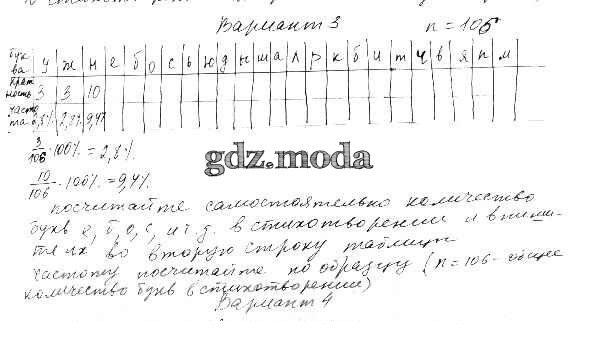 Вариант 3 n = 106
бук ва у ж н е б о с ь ю д ы ш а л р к б и т ч в я п м
крат ность 3 3 10
часто та 2,8% 2,8% 9,4%
3/106 · 100% = 2,8%
10/106 · 100% = 9,4%
gdz.moda
посчитайте самостоятельно количество
букв е, б, о, с, и т.д. в стихотворении и впиши-
те их во вторую строку таблицы
частоту посчитайте по образцу (n = 106 - общее
количество букв в стихотворении)
Вариант 4